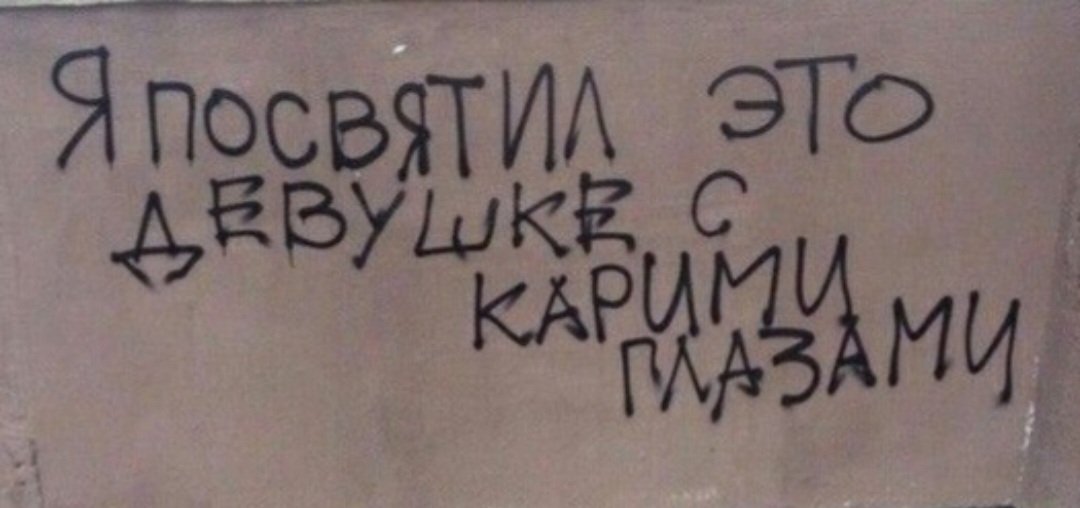 Я ПОСВЯТИЛ ЭТО
ДЕВУШКЕ С
КАРИМИ
ГЛАЗАМИ